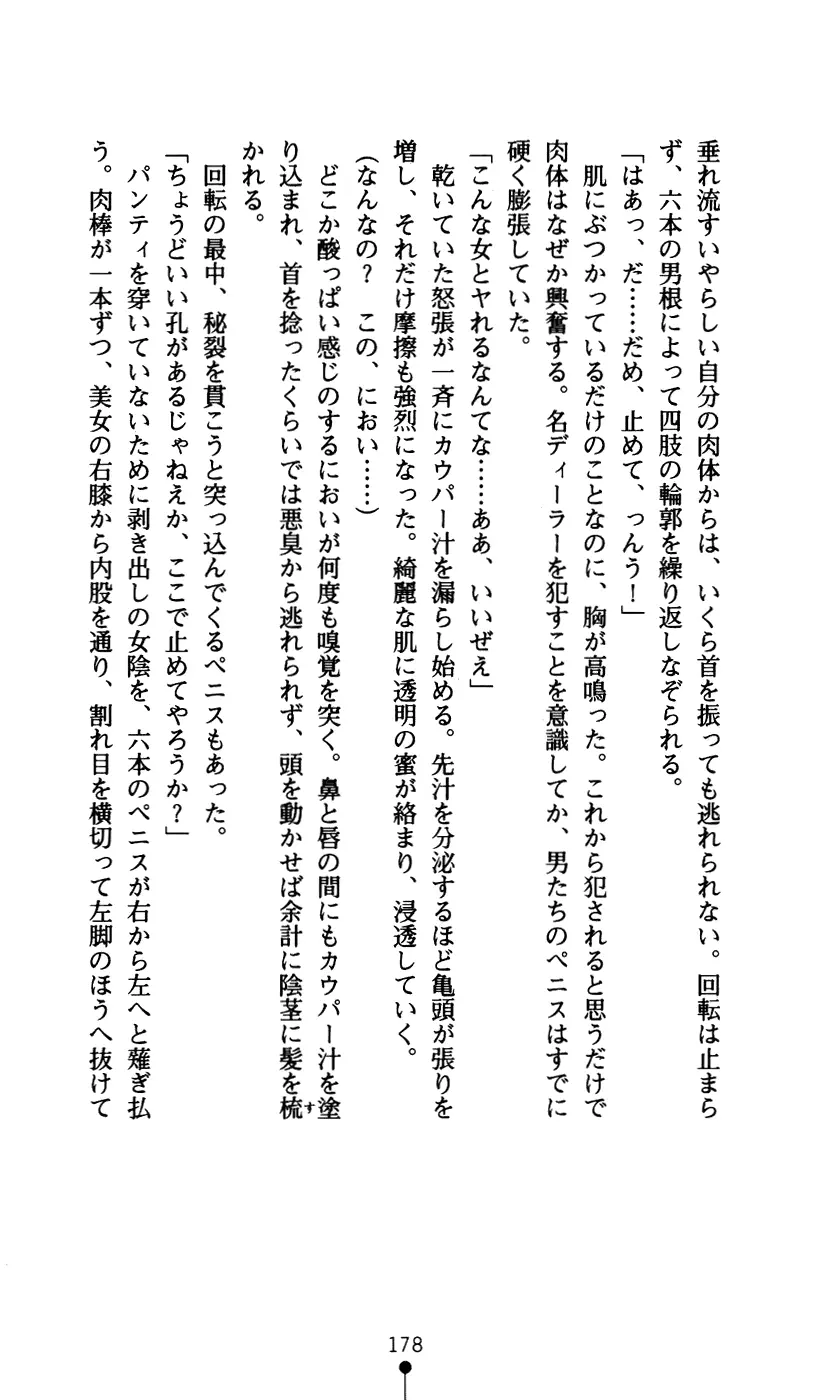 垂れ流すいやらしい自分の肉体からは、いくら首を振っても逃れられない。回転は止まら
ず、六本の男根によって四肢の輪郭を繰り返しなぞられる。
「はあっ、だ……だめ、止めて、っんう!」
　肌にぶつかっているだけのことなのに、胸が高鳴った。これから犯されると思うだけで
肉体はなぜか興奮する。名ディーラーを犯すことを意識してか、男たちのペニスはすでに
硬く膨張していた。
「こんな女とヤれるなんてな……ああ、いいぜえ」
　乾いていた怒張が一斉にカウパー汁を漏らし始める。先汁を分泌するほど亀頭が張りを
増し、それだけ摩擦も強烈になった。綺麗な肌に透明の蜜が絡まり、浸透していく。
(なんなの?　この、におい……)
　どこか酸っぱい感じのするにおいが何度も嗅覚を突く。鼻と唇の間にもカウパー汁を塗
り込まれ、首を捻ったくらいでは悪臭から逃れられず、頭を動かせば余計に陰茎に髪を梳す
かれる。
　回転の最中、秘裂を貫こうと突っ込んでくるペニスもあった。
「ちょうどいい孔があるじゃねえか、ここで止めてやろうか?」
　パンティを穿いていないために剥き出しの女陰を、六本のペニスが右から左へと薙ぎ払
う。肉棒が一本ずつ、美女の右膝から内股を通り、割れ目を横切って左脚のほうへ抜けて
178